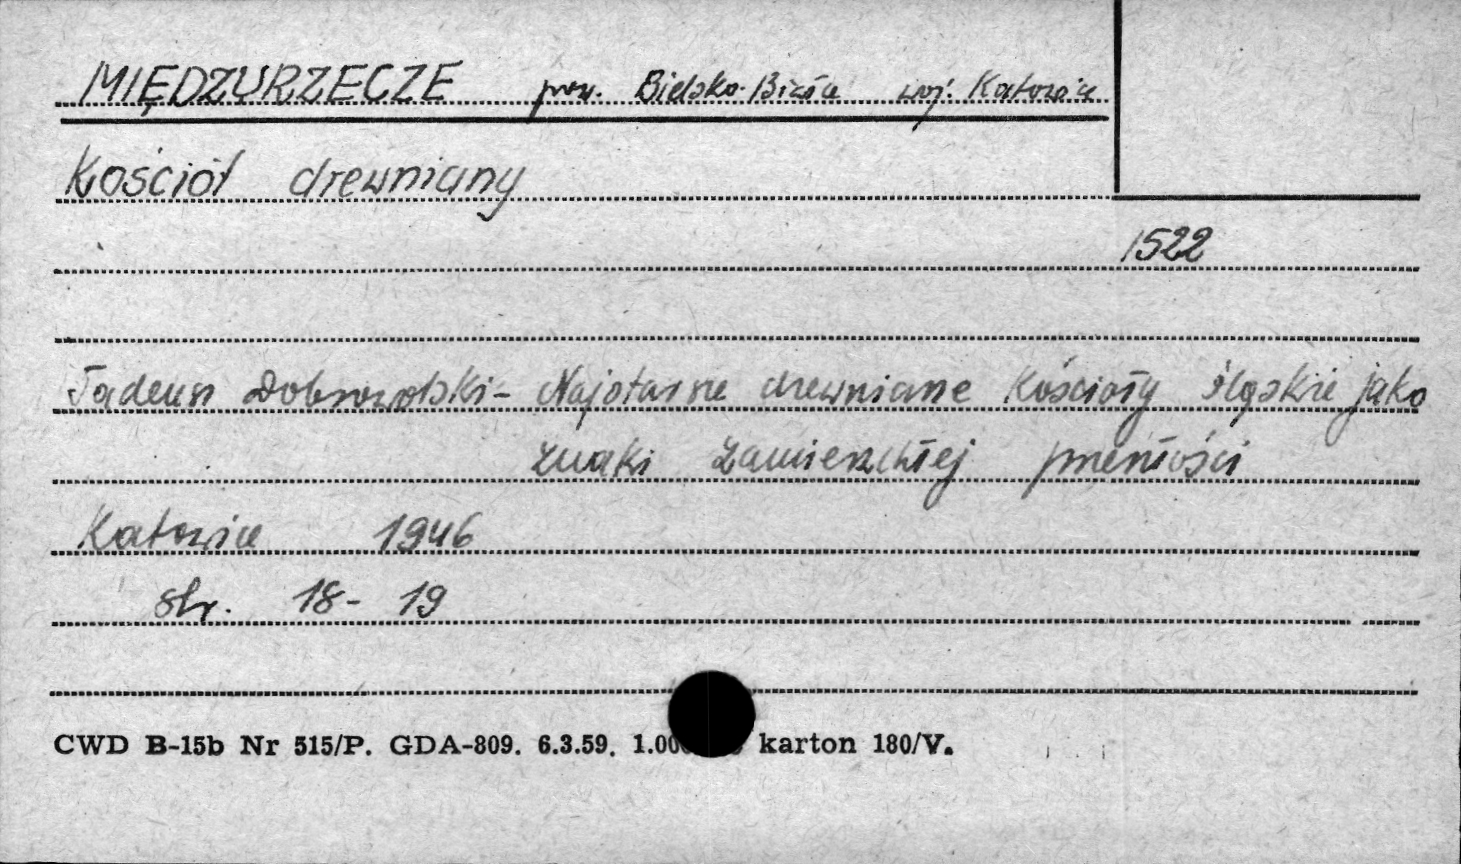 MIĘDZYRZECZE pow. Bielsko-Biała woj. Katowice
Kościół drewniany
1522
Tadeusz Dobrowolski - Najstarsze drewniane kościoły śląskie jako
znaki zamierzchłej przeszłości
Katowice 1946
str. 18-19
CWD B-15b Nr 515/P. GDA-809. 6.3.59. karton 180/V.